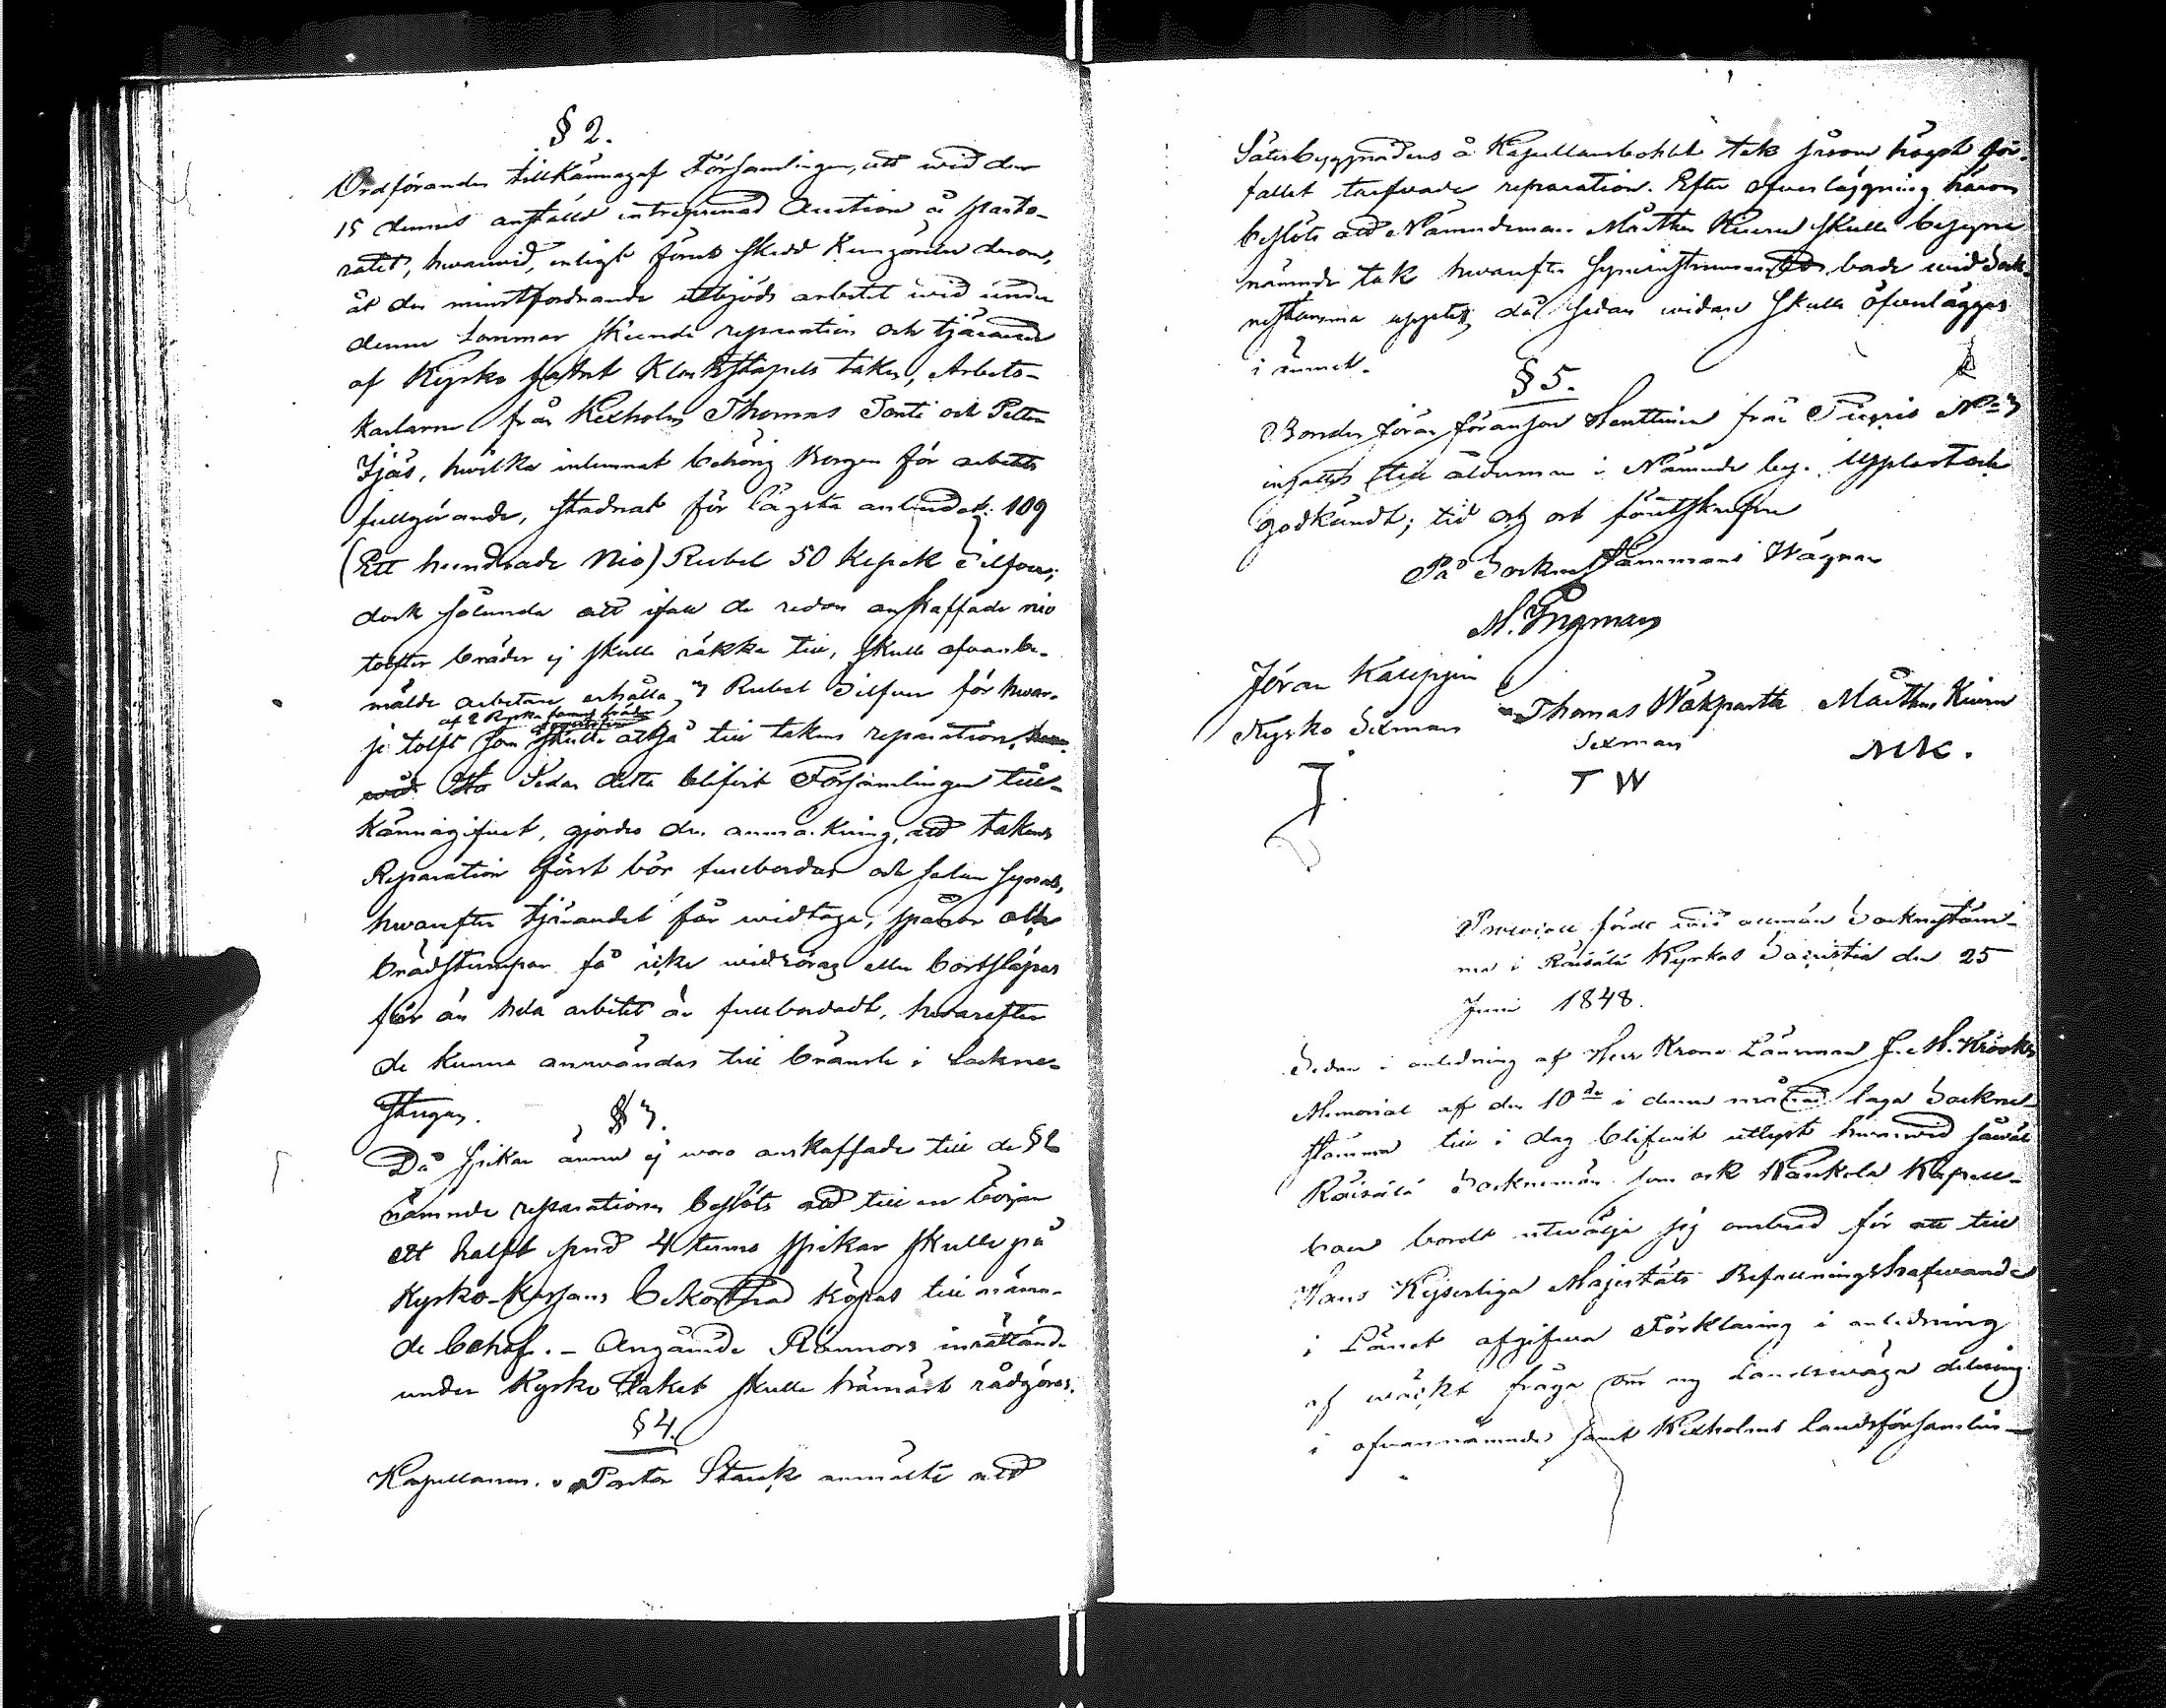 § 2.
Ordföranden tillkännagaf Församlingen, att wid den
15 dennes anställd entreprenad Auction å Pasto-
ratet, hwarwid, enligt förut skedd Kungörelse derom,
åt den minstfordrande utbjöds arbetet wid under
denne sommar skeende reparation och tjärande
af Kyrko samt Klockstapels taken, Arbets-
karlarne från Kexholm Thomas Tonti och Petter
Ijäs, hwilka inlemnat behörig borgen för arbetets
fullgörande, stadnat för lägsta anbudet: 109
(Ett hundrade Nio) Rubel 50 Kopek Silfver;
dock sålunda att ifall de redan anskaffade nio
tolfter bräder ej skulle räkka till, skulle ofvanbe-
mälde arbetare erhålla 3 Rubel Silfver för hwar-
af 2 Ryska famns bräder
je tolft som skulle åtgå till takens reparation,
Sedan detta blifvit Församlingen till-
kännagifvet, gjordes den anmärkning, att takens
Reparation först bör fullbordas och sedan synas,
hwarefter tjärandet får widtaga, spånor och
brädstumpar få icke widröras eller bortsläpas
förr än hela arbetet är fullbordadt, hwarefter
de kunna användas till bränsle i Sockne-
stugan.
§ 3.
Då spikar ännu ej woro anskaffade till de § 2
nämnde reparationer beslöts att till en början
ett halft pud 4 tums spikar skulle på
Kyrko-Kassans bekostnad köpas till nämn-
de behof. - Angående Rännors inrättande
under Kyrko taket skulle framdeles rådgöras.
§ 4.
Kapellanen v. Pastor Starck anmälte att
Säteribyggnadens å Kapellansbohlet tak såsom högst för-
fallet tarfvade reparation. Efter öfverläggning härom
beslöts att Nämndeman Matths Kiuru skulle besigta
nämnde tak hwarefter syneinstrumentet borde wid Sock-
nestämma uppläsas, då sedan widare skulle öfverlägges
i ämnet.
§ 5.
Bonden Jöran Jöransson Henttinen från Tiuris No 3
insattes till ålderman i Nämnde by. Upplast och
godkändt; tid och ort förutskrefne
På Sockne Stämmans Wägnar
M. Ingman
Jöran Kauppin
Kyrko Sexman
Thomas Wäkiparta
Sexman
T W
Matths Kiuru
MK.
Protocoll fördt wid allmän Socknestäm-
ma i Räisälä Kyrkas Sacristia den 25
Juni 1848.
Sedan i anledning af Herr Krono Länsman J. M. Kröökes
Memorial af den 10de i denne månad laga Sockne-
stämma till i dag blifvit utlyst hwarwid såwäl
Räisälä Sockenemän som ock Kaukola Kapell-
boer bordt utwälja sig ombud för att till
Hans Kejserliga Majestäts Befallningshafwande
i Länet afgifwa Förklaring i anledning
af wäckt fråga om ny Landswäga delning
i ofvannämnde samt Kexholms Landsförsamlin-